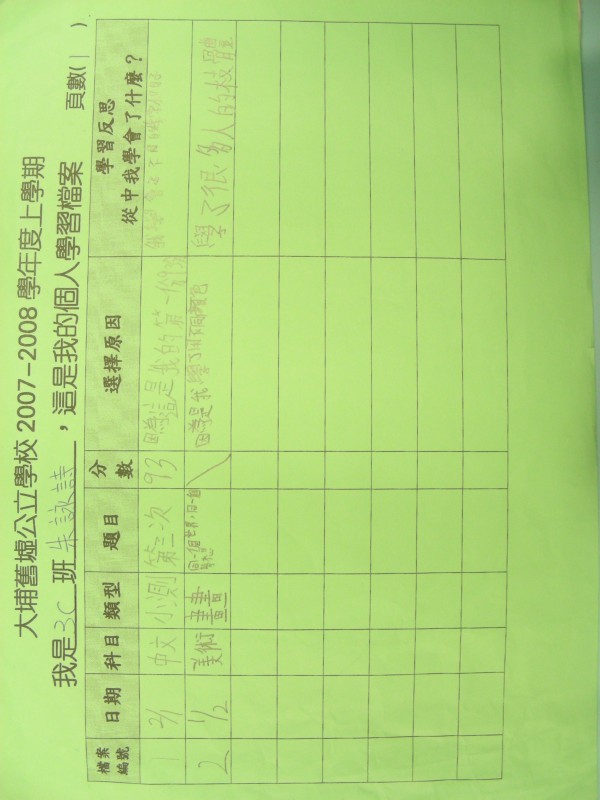 大埔舊墟公立學校 2007-2008 學年度上學期
我是 3C 班 朱詠詩 ，這是我的個人學習檔案 頁數( 1 )
檔案編號 日期 科目 類型 題目 分數 選擇原因 學習反思 從中我學會了什麼？
1 2/1 中文 小測 第三次 93 因為這是我的第一份
2 1/2 美術 畫畫 因為是我學了用不同顏色 學了很多人的枝體